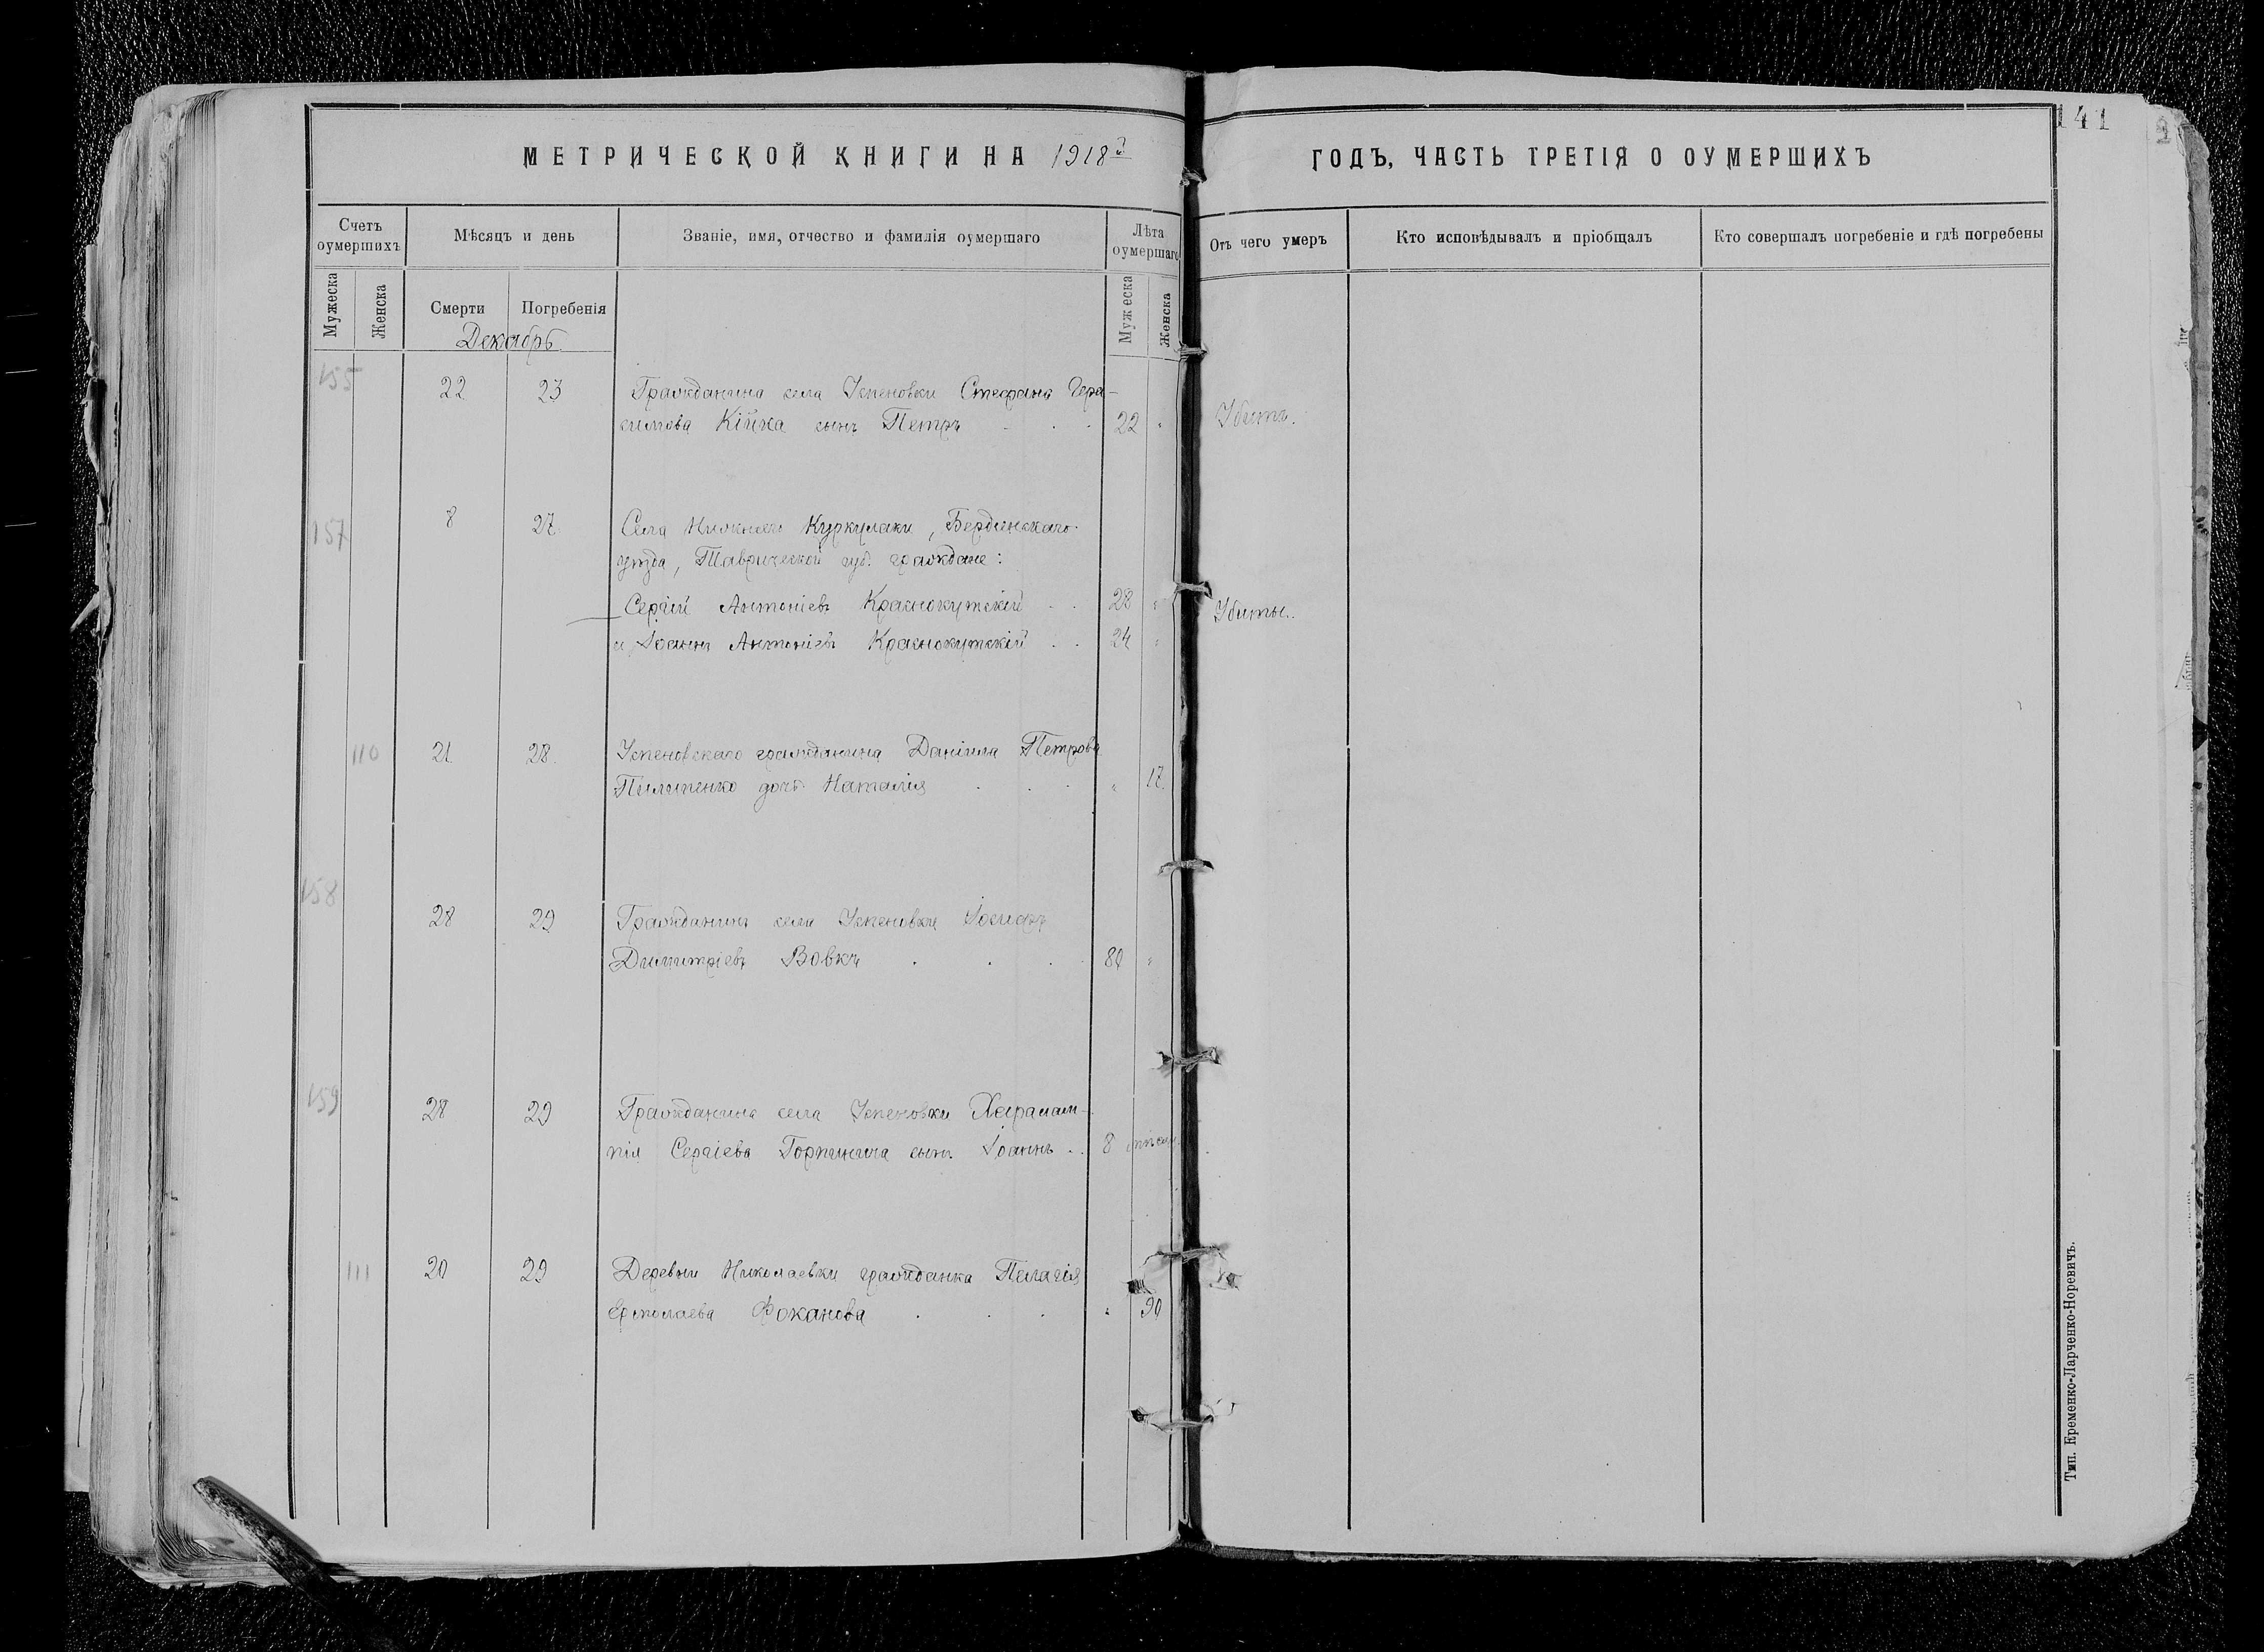 141
МЕТРИЧЕСКОЙ КНИГИ НА 1918 ГОДЪ, ЧАСТЬ ТРЕТІЯ О ОУМЕРШИХЪ
Счетъ оумершихъ
Мѣсяцъ и день
Званіе, имя, отчество и фамилія оумершаго
Лѣта оумершаго
Отъ чего умеръ
Кто исповѣдывалъ и пріобщалъ
Кто совершалъ погребеніе и гдѣ погребены
Мужеска
Женска
Смерти
Погребенія
Мужеска
Женска
Декабрь
155 22 23 Гражданина села Успеновки Стефана Гера-
симова Кійка сынъ Петръ 22 " Убитъ.
157 8 27 Села Нижнего Куркулаки, Бердянскаго
уѣзда, Таврической губ. граждане:
Сергій Антоніевъ Краснокутскій 28 " Убиты.
и Іоаннъ Антоніевъ Краснокутскій 24 "
110 21 28 Успеновскаго гражданина Даніила Петрова
Пилипенко дочь Наталія " 17
158
28 29 Гражданинъ села Успеновки Іосифъ
Димитріевъ Вовкъ 80 "
159 28 29 Гражданина села Успеновки Харалам-
пія Сергіева Горпинича сынъ Іоаннъ 8
111 20 29 Деревни Николаевки гражданка Пелагія
Ермолаева Фоканова " 90
Тип. Еременко-Ларченко-Норевичъ.